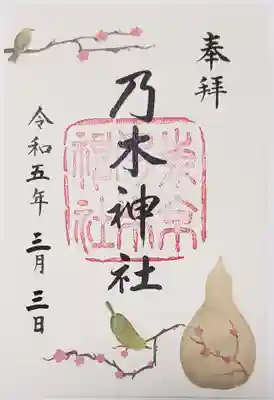 奉拝
乃木神社
令和五年 三月 三日